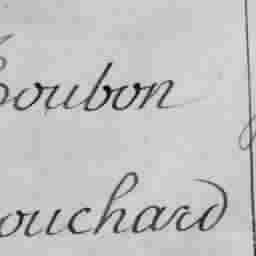 oubon
ouchard